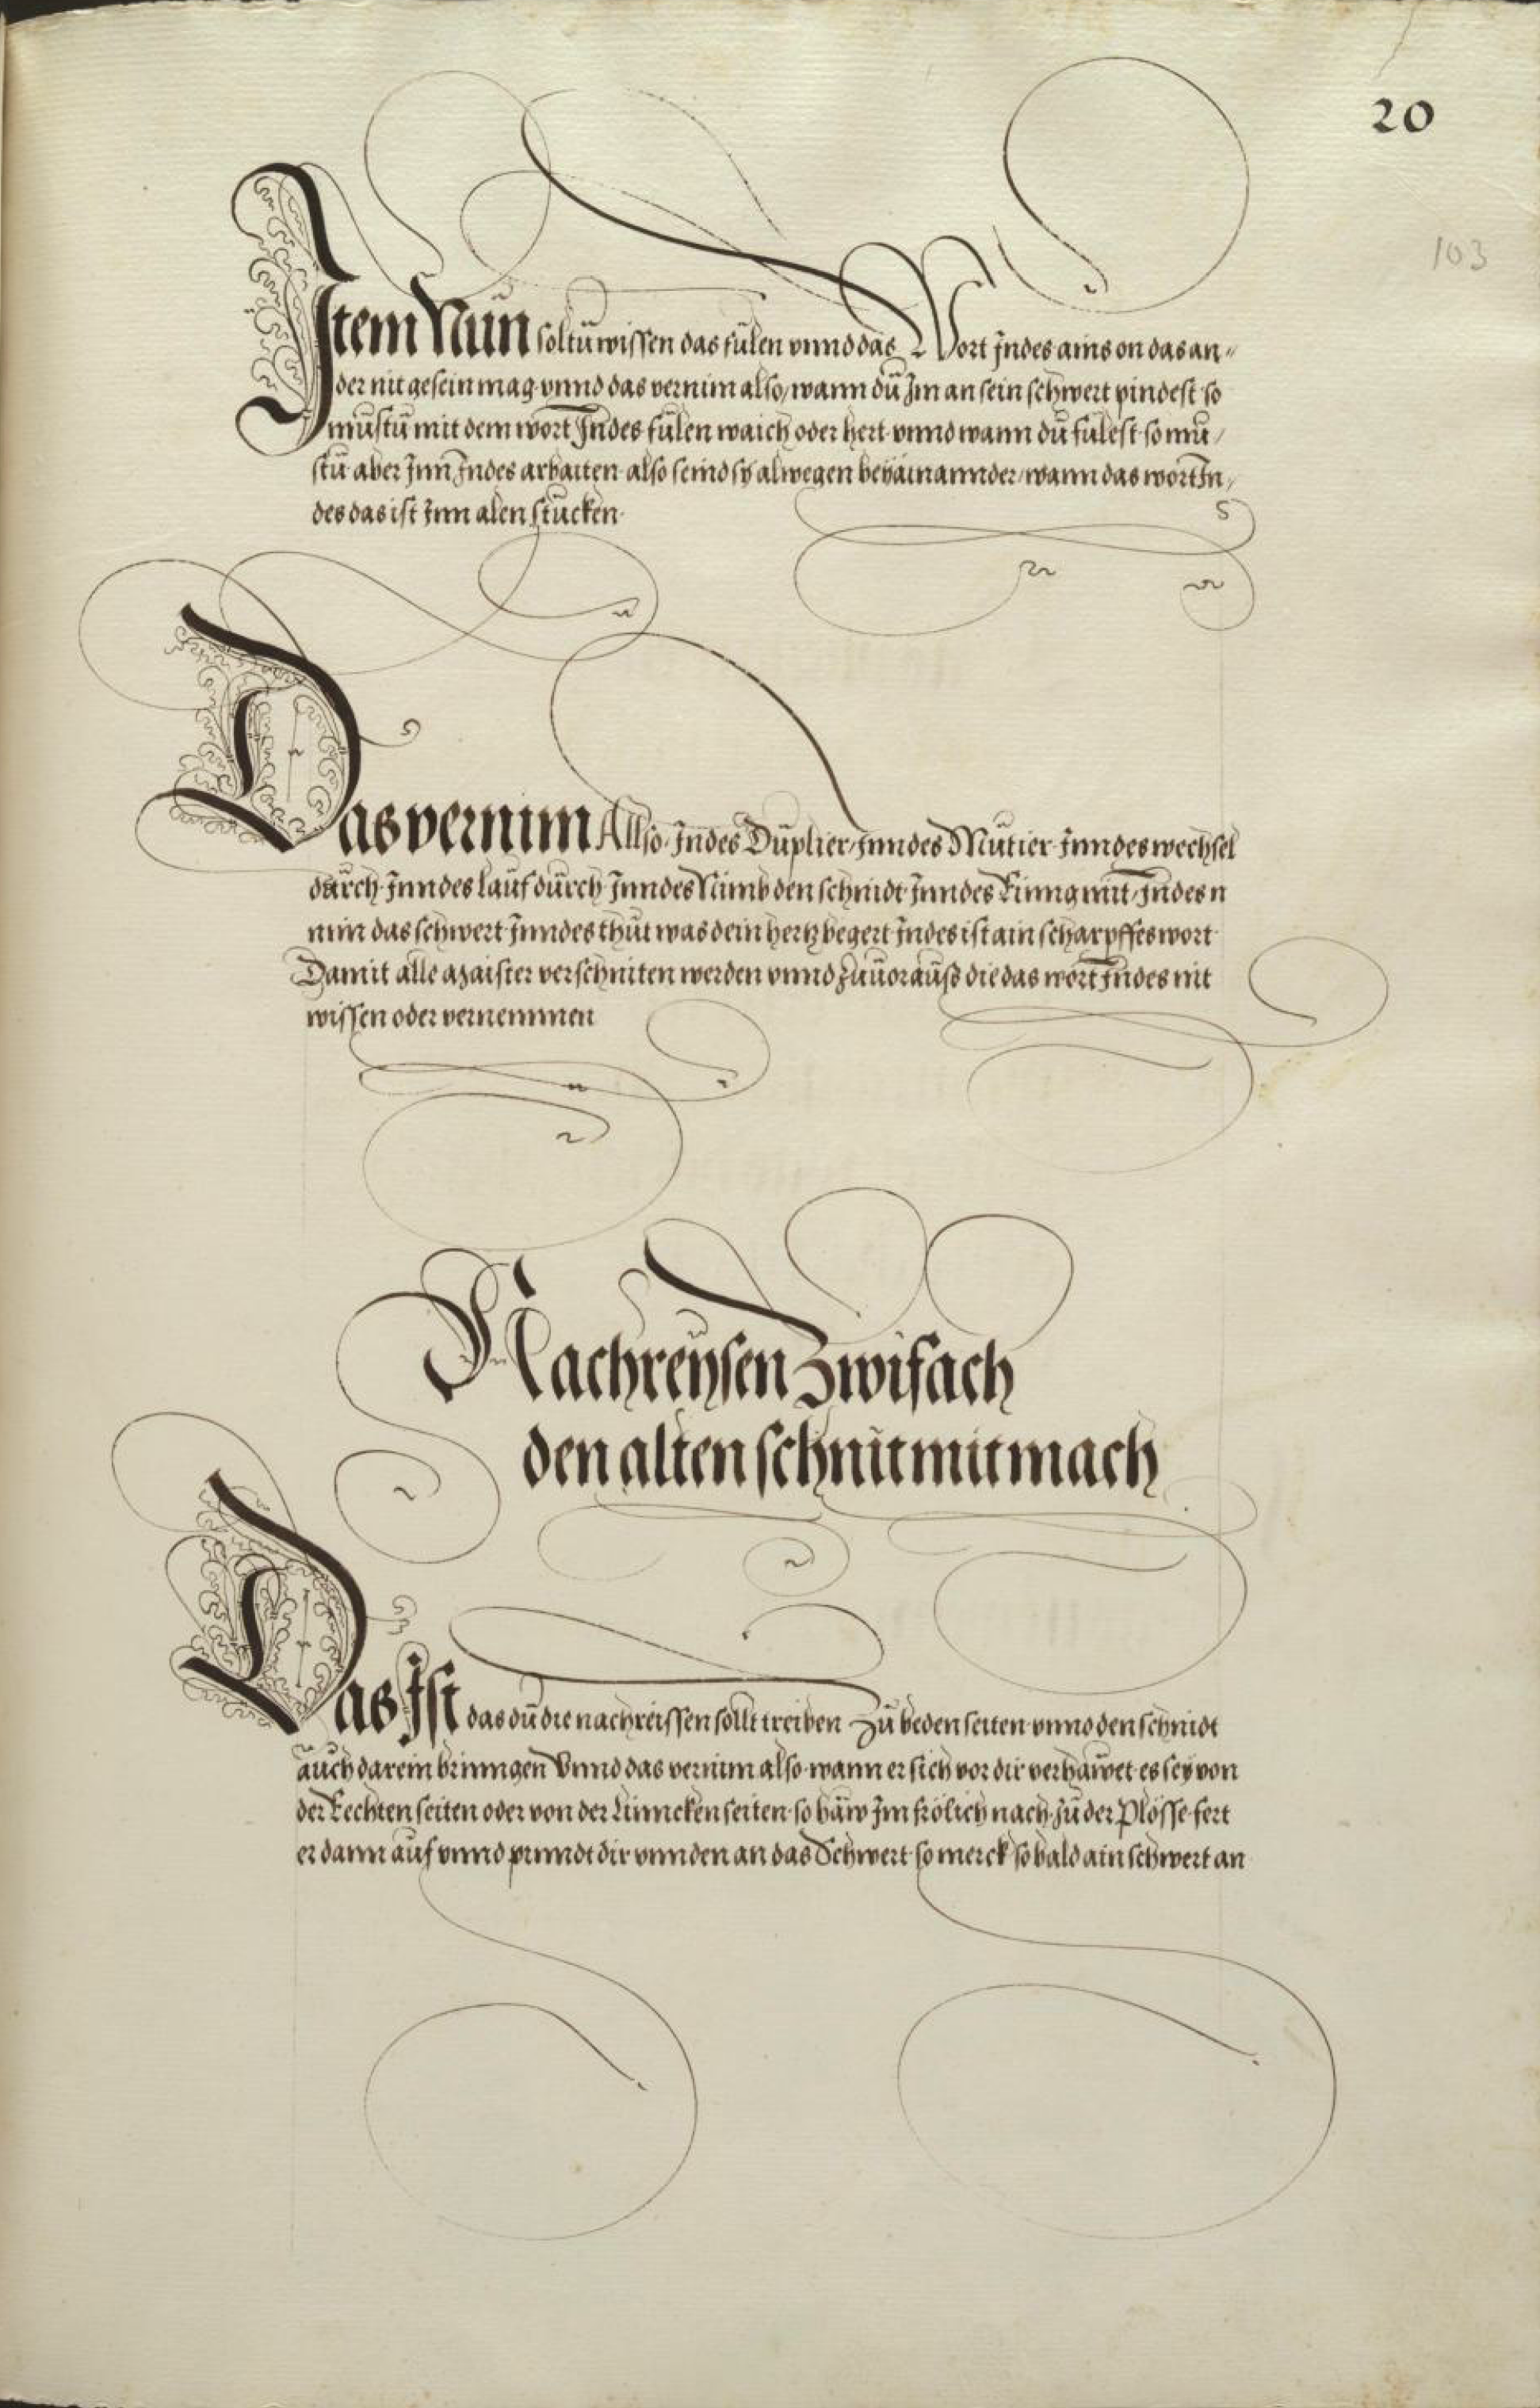 20
103
Item Nun soltu wissen das fülen vnnd das Wort Jndes ains on das an-
der nit gesein mag vnnd das vernim also, wann dü Jm an sein schwert pindest so
müstü mit dem wort Jndes fülen waich oder hert vnnd wann dü fülest so mü-
stü aber Jnn Jndes arbaiten also seind sy alwegen beÿainannder, wann das wort Jn-
des das ist Jnn alen stücken
Das vernim Allso Jndes Düplier, Jnndes Mütier Jnndes wechsel
dürch Jnndes lauf dürch Jnndes Nimb den schnidt Jnndes Ring mit, Jndes n
nim das schwert Jnndes thüt was dein hertz begert Jndes ist ain scharpffes wort
Damit alle maister verschniten werden vnnd züüorauß die das wort Jndes nit
wissen oder vernemmen
Nachreÿsen Zwifach
den alten schnit mit mach
Das Jst das dü die nachreissen sollt treiben Zü beden seiten vnnd den schnidt
auch darein brinngen Vnnd das vernim also wann er sich vor dir verhawet es seÿ von
der Rechten seiten oder von der Linncken seiten so haw Jm frölich nach zü der Plösse fert
er dann auf vnnd pinndt dir vnnden an das Schwert so merck so bald ain schwert an